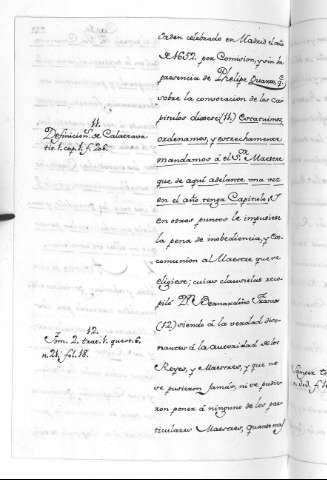 Orden celebrado en Madrid el año
de 1652. por Comision, y sin la
presencia de Phelipe Quarto
sobre la convocacion de los Ca-
pitulos dicese: (11.)
ordenamos, y estrechamente
mandamos á el Sr. Maestre
que de aqui adelante una vez
en el año tenga Capitulo
en otros puntos le impusiese
la pena de inobediencia, y ex-
comunion al Maestre que se
eligiere; cuias clausulas reco-
piló Dn. Bernardino
(12) siendo á la verdad diso-
nantes á la autoridad de los
Reyes, y Maestres, y que no
se pusieron jamás, ni se pudie-
ron poner á ninguno de los par-
ticulares Maestres, quanto mas
11.
Definicion.s de Calatrava
tit. 1. cap. 1. f. 206.
12.
Tom. 2. trat. 1. quest. 6.
n. 21. fol. 18.